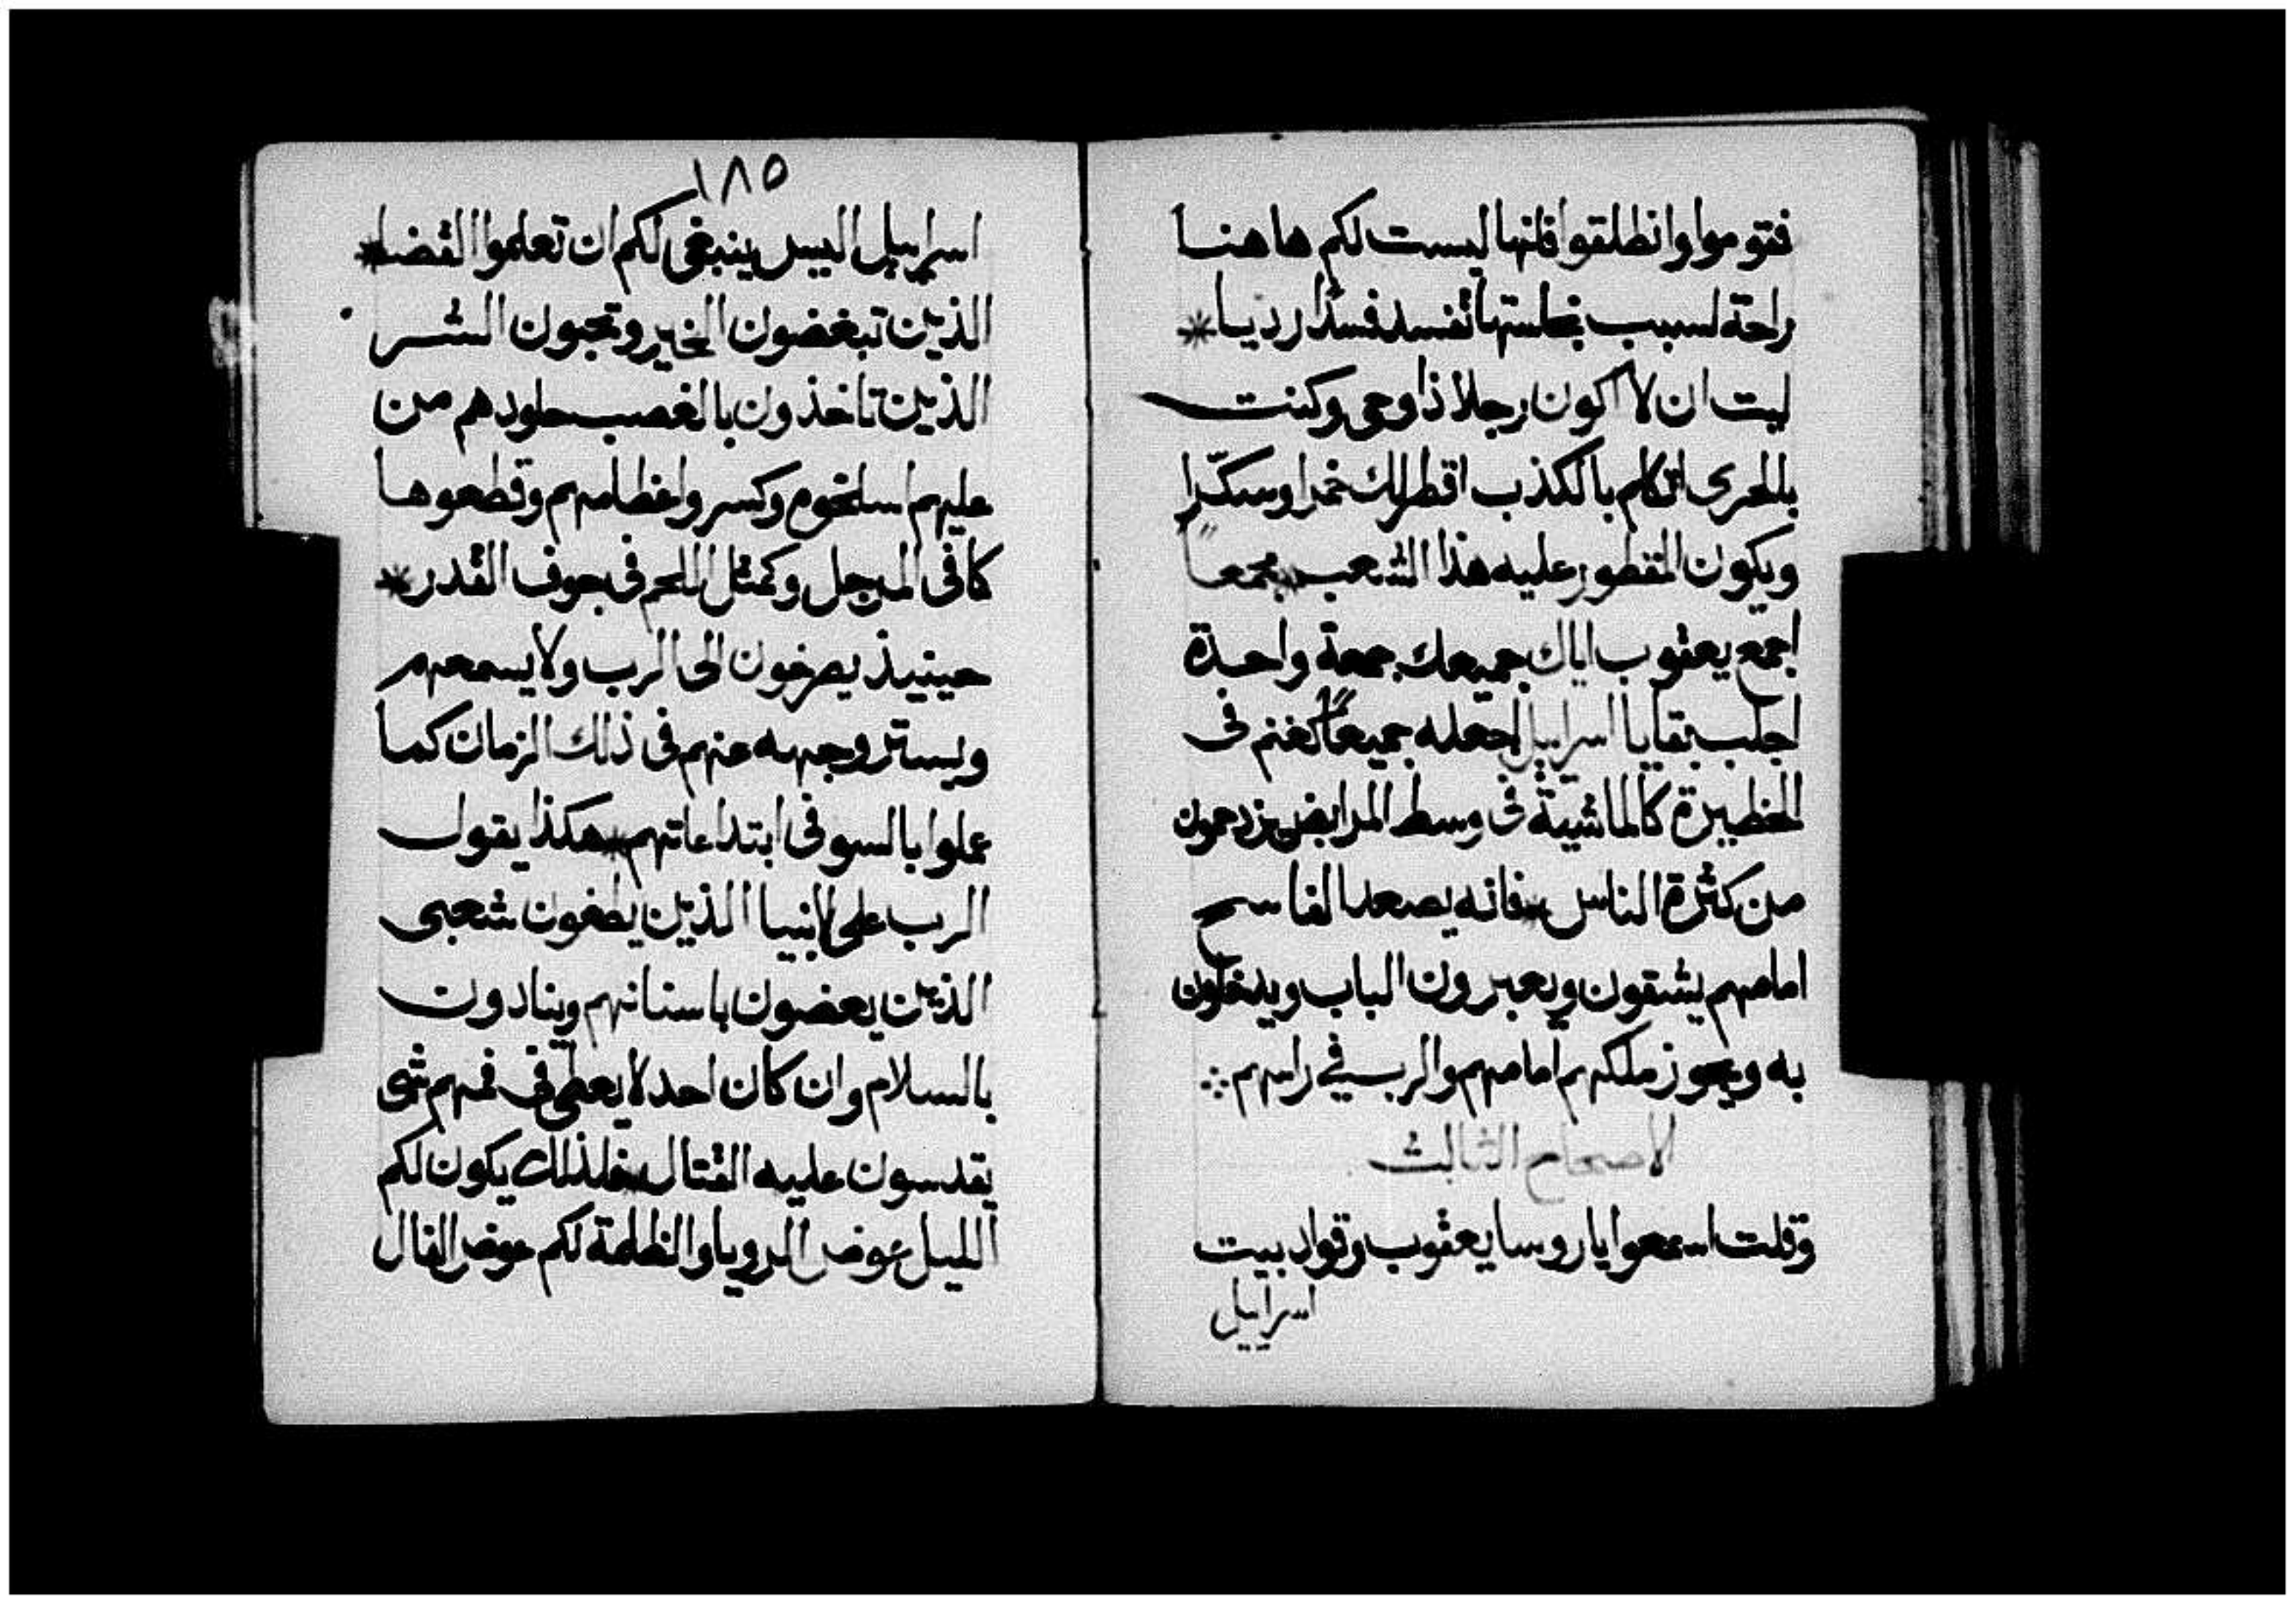 فتوموا وانطلقوا فانها ليست لكم هاهنا
راحة لسبب نجاستها تفسد فسدًا رديا *
ليت ان لا اكون رجلا ذا وحي وكنت
بالحري اتكلم بالكذب اقطر لك خمرا وسكّرا
ويكون المقطور عليه هذا الشعب * بجمعًا
اجمع يعقوب اياك جميعك جمعة واحدة
اجلب بقايا اسراييل اجعله جميعًا كغنم فى
الحظيرة كالماشيةّ فى وسط المرابض يزدحمون
من كثرة الناس * فانه يصعد الفاسح
امامهم يشقون ويعبرون الباب ويدخلون
به ويجوز ملكهم امامهم والرب في راسهم ⁘
الاصحاح الثالث
وقلت اسمعوا يا روسا يعقوب وقواد بيت
اسراييل
١٨٥
اسراييل اليس ينبغى لكم ان تعلموا القضا *
الذين تبغضون الخير وتحبون الشر
الذين تاخذون بالغصب جلودهم من
عليهم اسلخوم وكسروا عظامهم وقطعوها
كافى المرجل وكمثل اللحم فى جوف القدر *
حينييذ يصرخون الى الرب ولا يسمعهم
ويستر وجهه عنهم فى ذلك الزمان كما
عملوا بالسو فى ابتداعاتهم * هكذا يقول
الرب على الانبيا الذين يطغون شعبى
الذين يعضون باسنانهم وينادون
بالسلام وان كان احد لا يعطى فى فمهم شى
يقدسون عليه القتال * فلذلك يكون لكم
الليل عوض الرويا والظلمة لكم عوض الفال